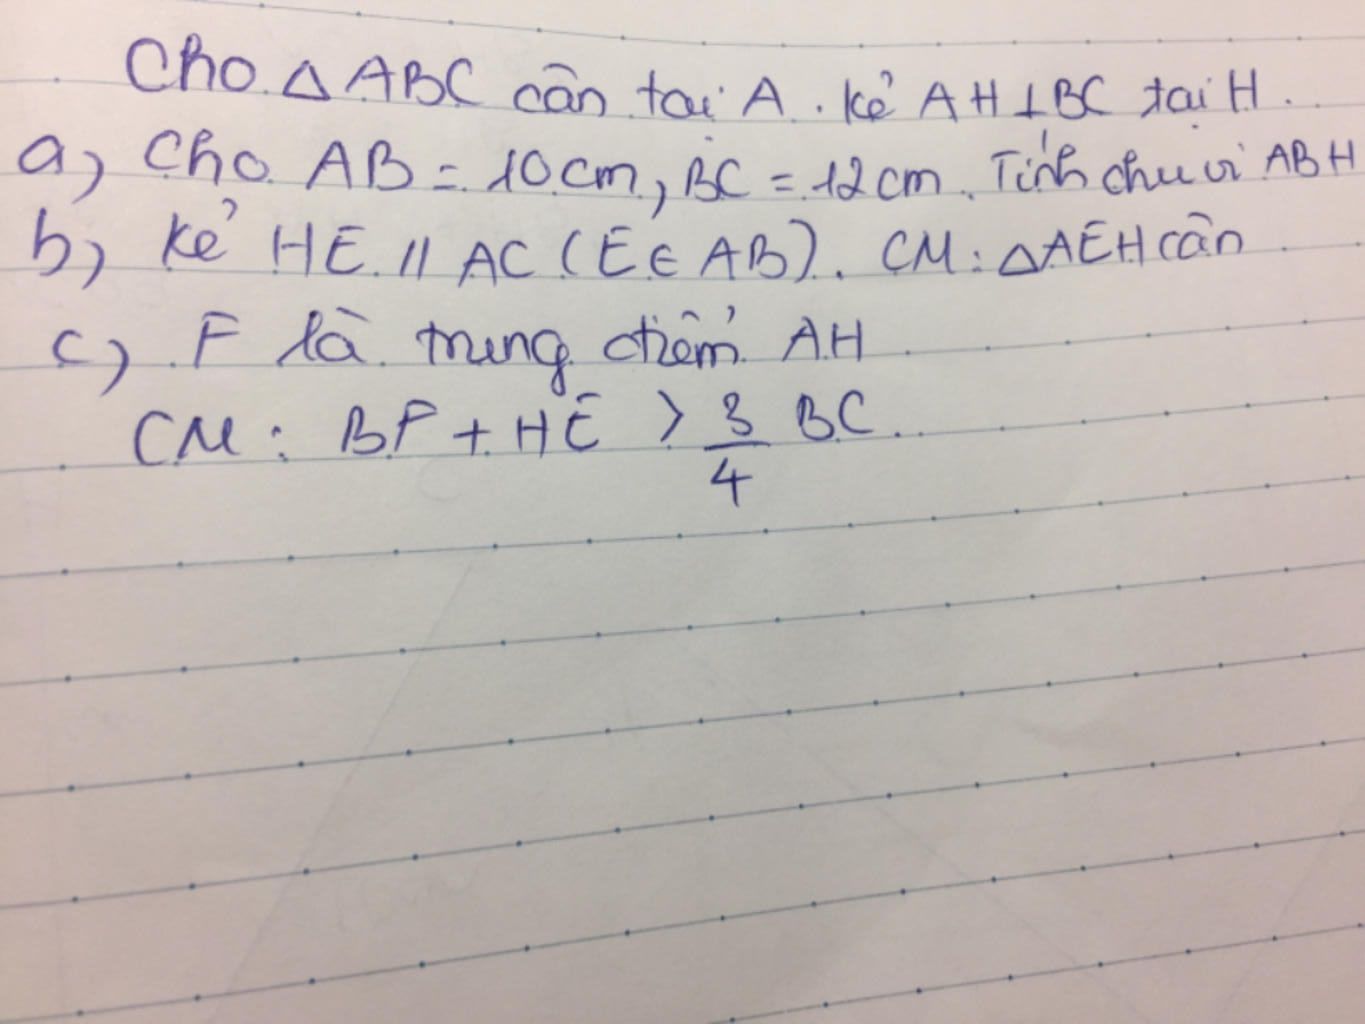 Cho △ABC cân tại A. Kẻ AH⊥BC tại H.
a, Cho AB = 10cm, BC = 12cm. Tính chu vi ABH
b, Kẻ HE // AC (E∈AB). CM: △AEH cân
c, F là trung điểm AH
CM: BF + HE > 3/4 BC.